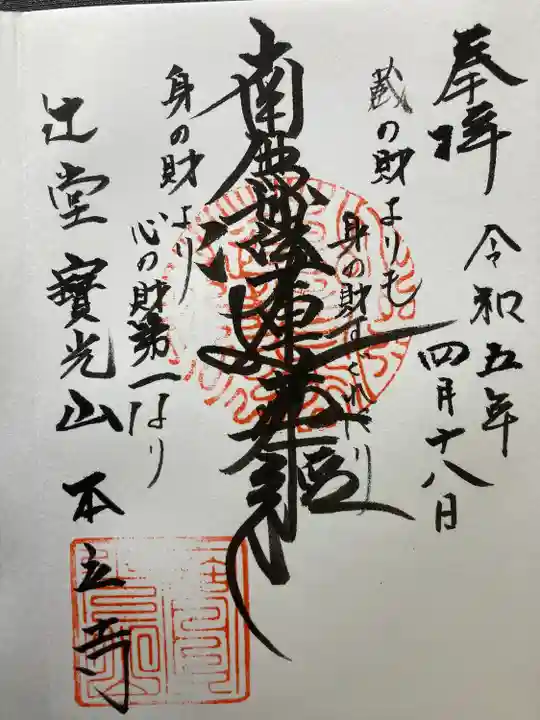 奉拝
令和五年
四月十八日
蔵の財よりも
身の財すぐれたり
南無妙法蓮華経
身の財より
心の財第一なり
辻堂 寳光山 本立寺